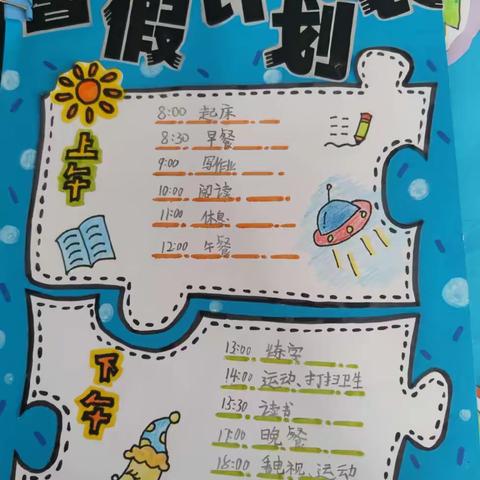 暑假计划表
上午
8:00 起床
8:30 早餐
9:00 写作业
10:00 阅读
11:00 休息
12:00 午餐
下午
13:00 练字
14:00 运动、打扫卫生
15:30 读书
17:00 晚餐
18:00 看电视、运动